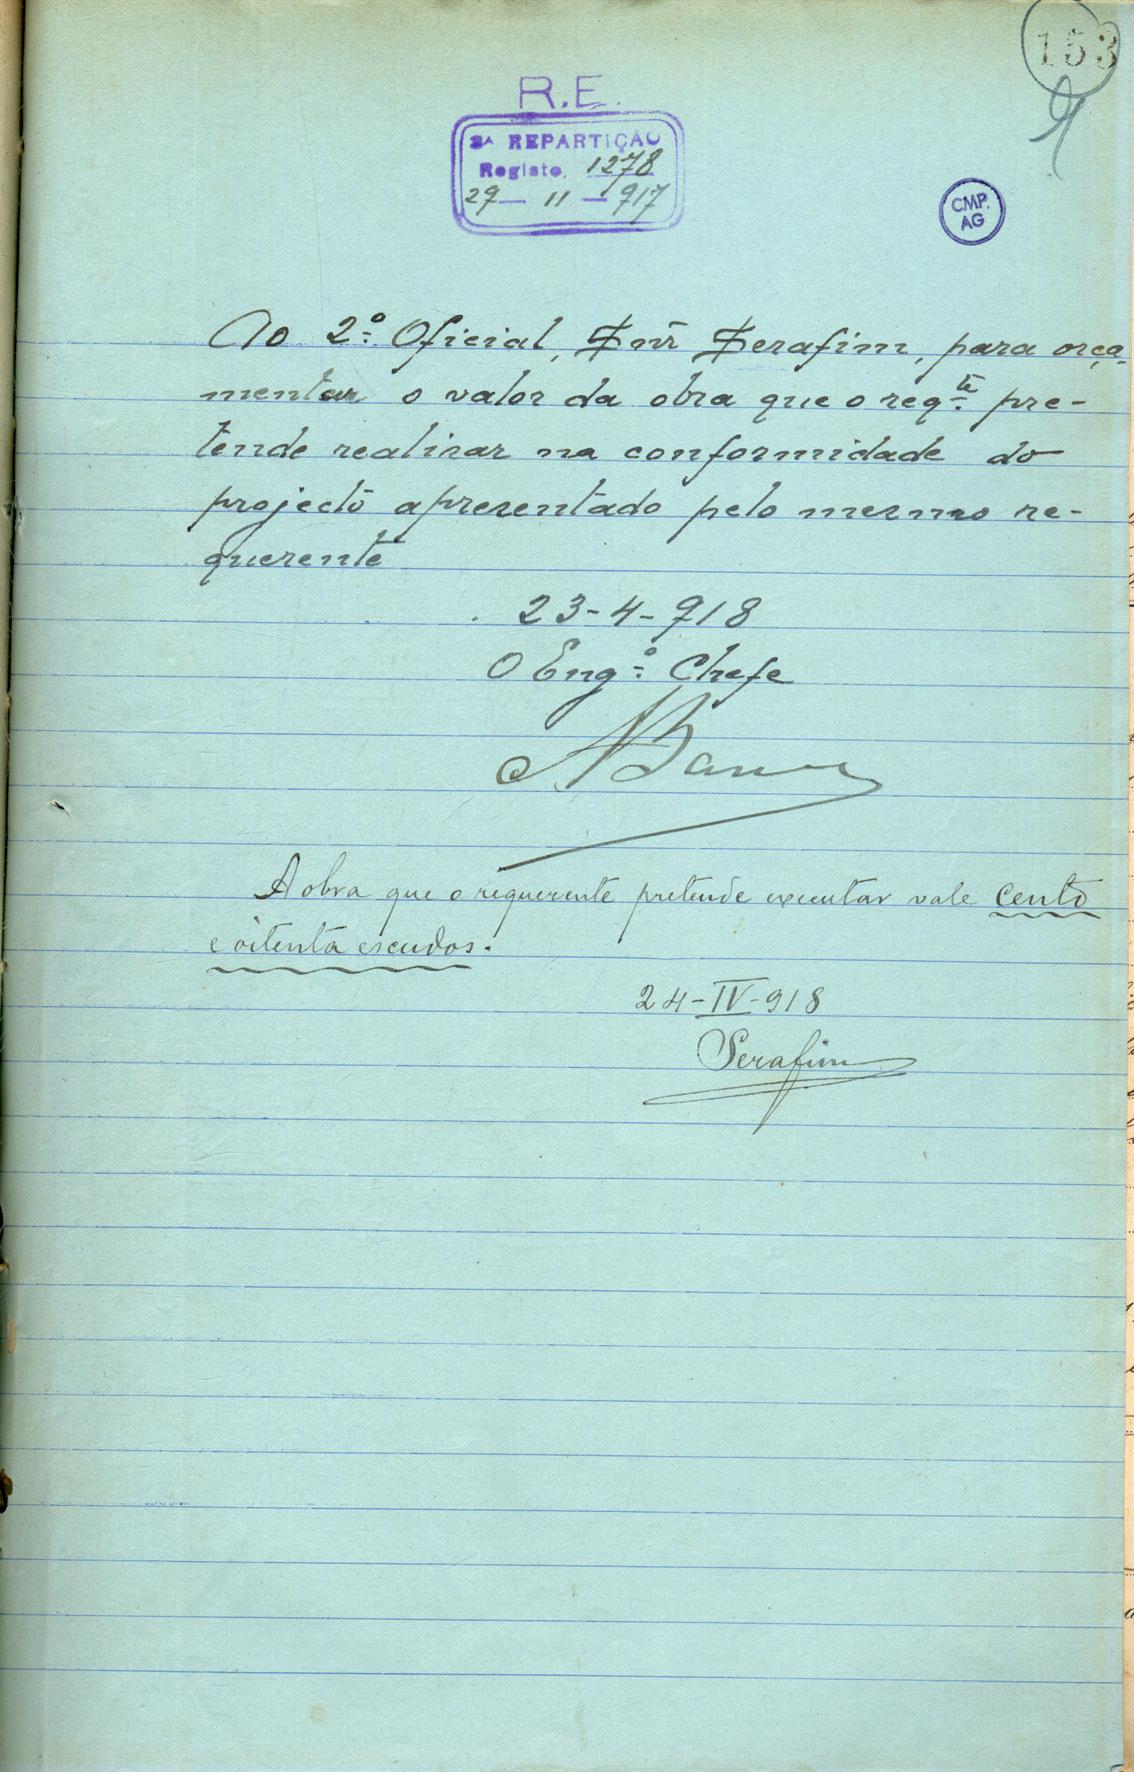 153
R.E.
3ª REPARTIÇÃO
Registo. 1278
29 — 11 — 917
CMP.
AG
Ao 2º Oficial, Snr Serafim, para orça-
mentar o valor da obra que o reqte pre-
tende realisar na conformidade do
projecto apresentado pelo mesmo re-
querente
23-4-918
O Engº Chefe
A obra que o requerente pretende executar vale cento
e oitenta escudos.
24-IV-918
Serafim